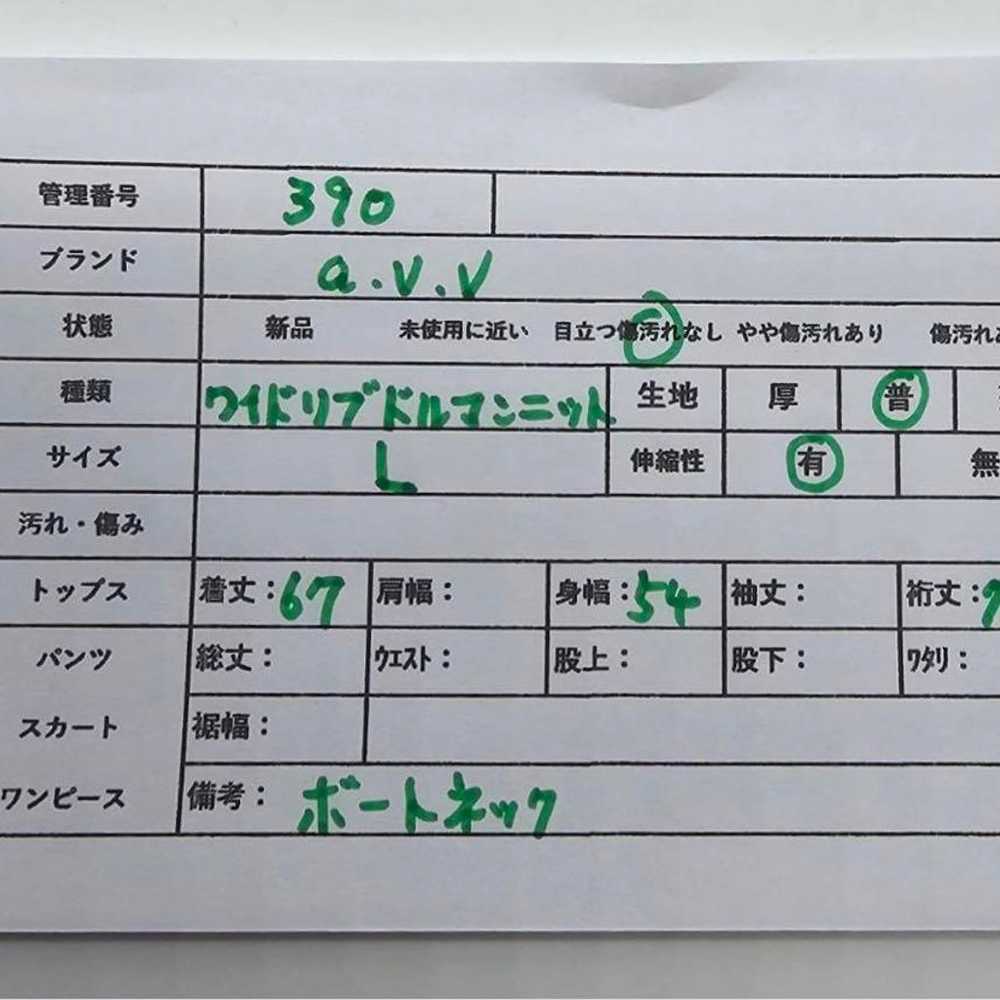 管理番号 390
ブランド a.v.v
状態 新品 未使用に近い 目立つ傷汚れなし やや傷汚れあり 傷汚れ
種類 ワイドリブドルマンニット 生地 厚 普
サイズ L 伸縮性 有 無
汚れ・傷み
トップス 着丈：67 肩幅： 身幅：54 袖丈： 裄丈：
パンツ 総丈： ウエスト： 股上： 股下： ワタリ：
スカート 裾幅：
ワンピース 備考： ボートネック